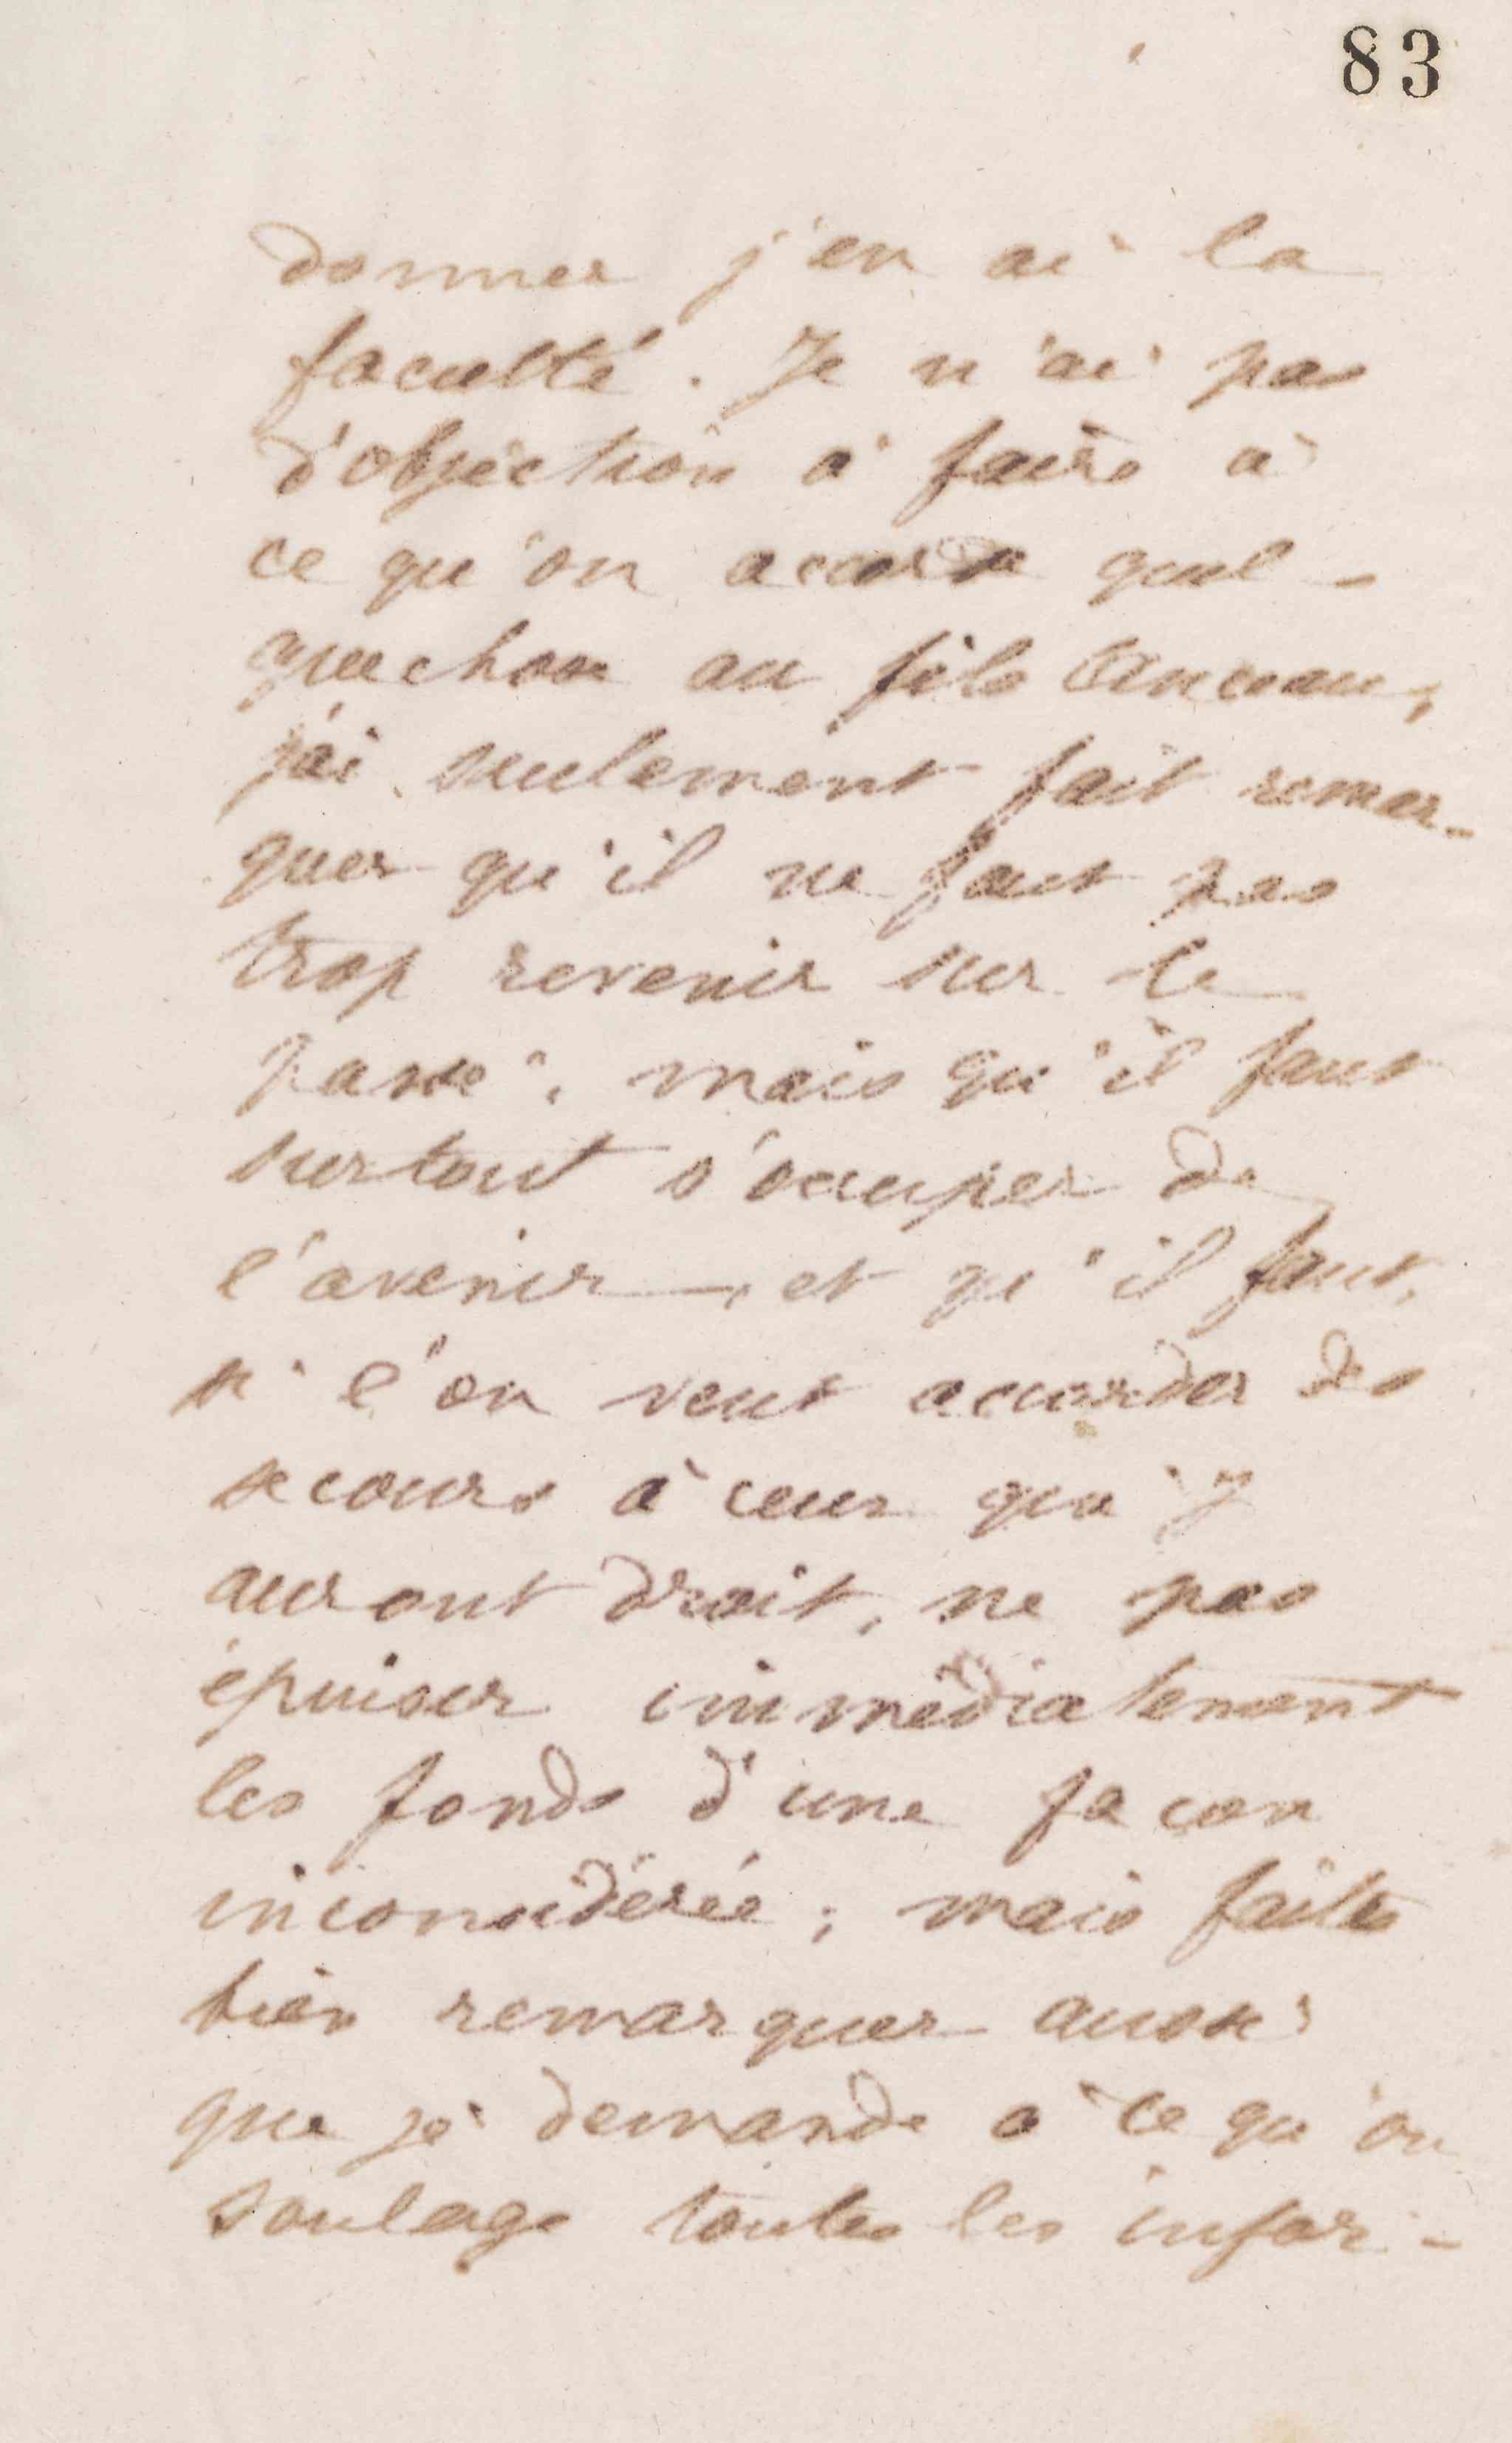 83
donner j'en ai la
faculté. Je n'ai pas
d'objection à faire à
ce qu'on accorde quel-
que chose au fils
j'ai seulement fait remar-
quer qu'il ne faut pas
trop revenir sur le
passé, mais qu'il faut
surtout s'occuper de
l'avenir, et qu'il faut,
si l'on veut accorder des
secours à ceux qui y
auront droit, ne pas
épuiser immédiatement
les fonds d'une façon
inconsidérée; mais faites
bien remarquer aussi
que je demande à ce qu'on
soulage toutes les infor-